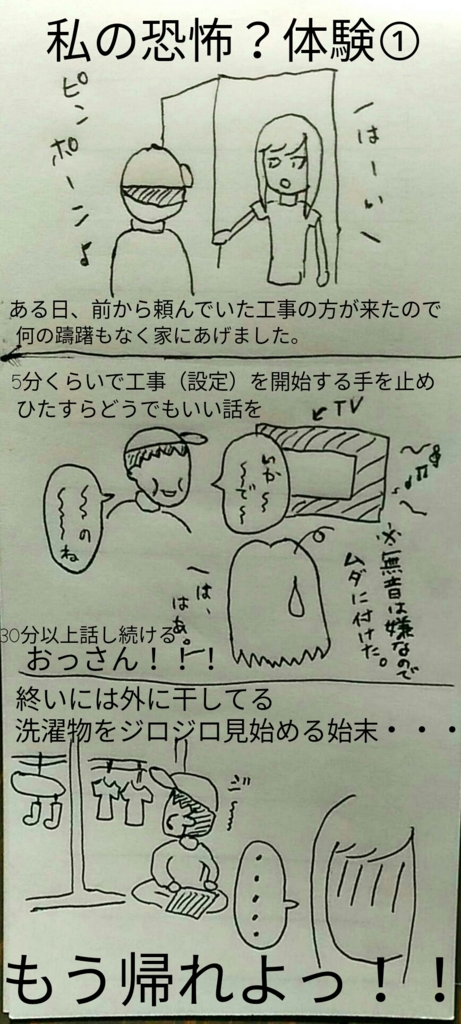 私の恐怖？体験①
ピンポーン♪
はーい
ある日、前から頼んでいた工事の方が来たので
何の躊躇もなく家にあげました。
5分くらいで工事（設定）を開始する手を止め
ひたすらどうでもいい話を
TV
※無音は嫌なので
ムダに付けた。
は、
はあ。
30分以上話し続ける
おっさん！！！
終いには外に干してる
洗濯物をジロジロ見始める始末・・・
ジー
・・・・・
もう帰れよっ！！